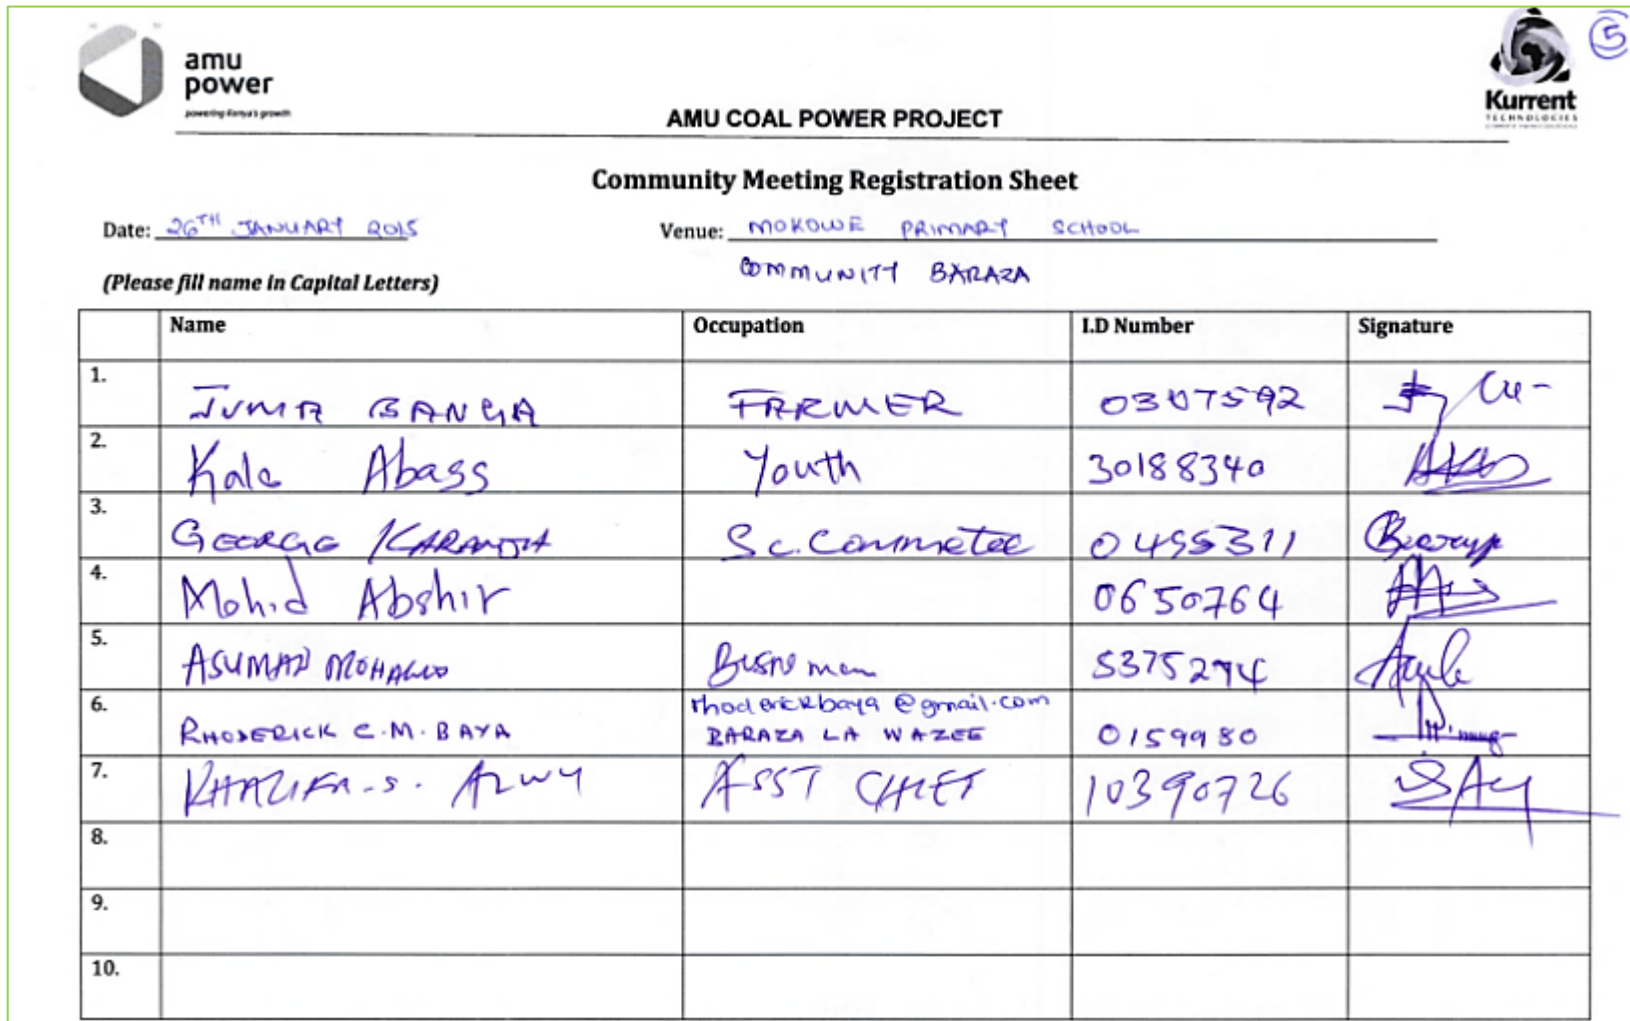 amu
power
powering Kenya's growth
Kurrent
TECHNOLOGIES
5
AMU COAL POWER PROJECT
Community Meeting Registration Sheet
Date: 26TH JANUARY 2015 Venue: MOKOWE PRIMARY SCHOOL
COMMUNITY BARAZA
(Please fill name in Capital Letters)
Name Occupation I.D Number Signature
1. JUMA BANGA FARMER 0307592
2. Kale Abass Youth 30188340
3. GEORGE KARANJA Sc. Commetee 0455311
4. Mohid Abshir 0650764
5. ASUMAN Busnes man 5375274
6. RHODERICK C.M. BAYA rhoderickbaya@gmail.com
BARAZA LA WAZEE 0159980
7. KHALIFA.S. ALWY ASST CHIEF 10390726
8.
9.
10.